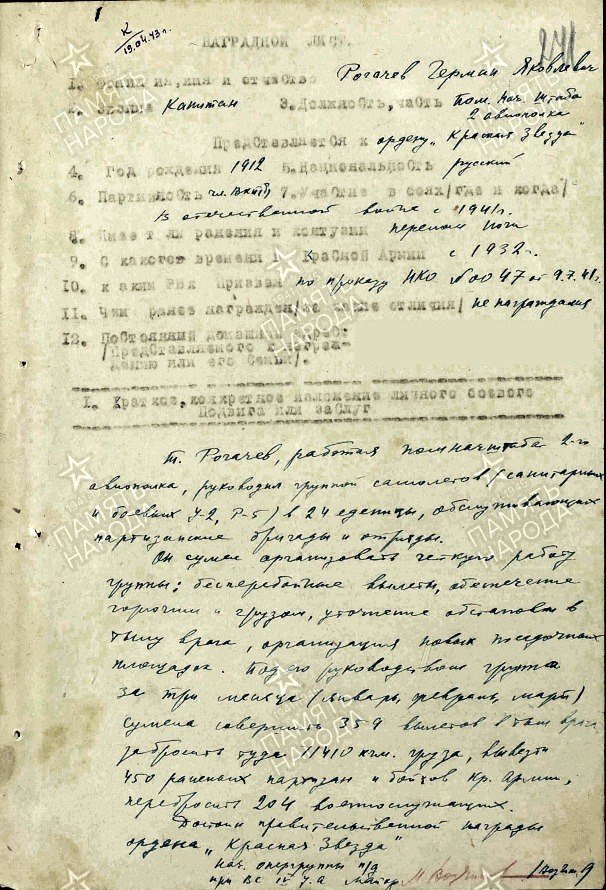 К
19.04.43 г.
НАГРАДНОЙ ЛИСТ.
1. Фамилия, имя и отчество Рогачев Герман Яковлевич
2. Звание Капитан 3. Должность, часть Пом. Нач. Штаба
2 авиаполка
Представляется к ордену „Красная Звезда"
4. Год рождения 1912 5. Национальность русский
6. Партийность чл. ВКП(б) 7. Участие в боях/где и когда/
В отечественной войне с 1941 г.
8. Имеет ли ранения и контузии перелом ноги
9. С какого времени в Красной Армии с 1932 г.
10. Каким РВК призван по приказу НКО №0047 от 9.7.41 г.
11. Чем ранее награжден/ иные отличия/ не награждался
12. Постоянный домашний адрес:
/Представляемого к награж-
дению или его семьи/.
I. Краткое, конкретное изложение личного боевого
подвига или заслуг
Т. Рогачев, работая помначштаба 2-го
авиополка, руководил группой самолетов (санитарных
и боевых У-2, Р-5) в 24 еденицы, обслуживающих
партизанские бригады и отряды.
Он сумел организовать четкую работу
группы: бесперебойные вылеты, обеспечение
горючим и грузом, уточнение обстановки в
тылу врага, организация новых посадочных
площадок. Под его руководством группа
за три месяца (январь, февраль, март)
сумела совершить 359 вылетов в тыл врага,
забросить туда 11410 кгм. груза, вывезти
450 раненых партизан и бойцов Кр. Армии,
перебросить 204 военнослужащих.
Достоин правительственной награды
ордена „Красная Звезда"
Нач. опергруппы п/д
при ВС IV У.А. Майор
ПАМЯТЬ
НАРОДА
ПАМЯТЬ
НАРОДА
ПАМЯТЬ
НАРОДА
ПАМЯТЬ
НАРОДА
ПАМЯТЬ
НАРОДА